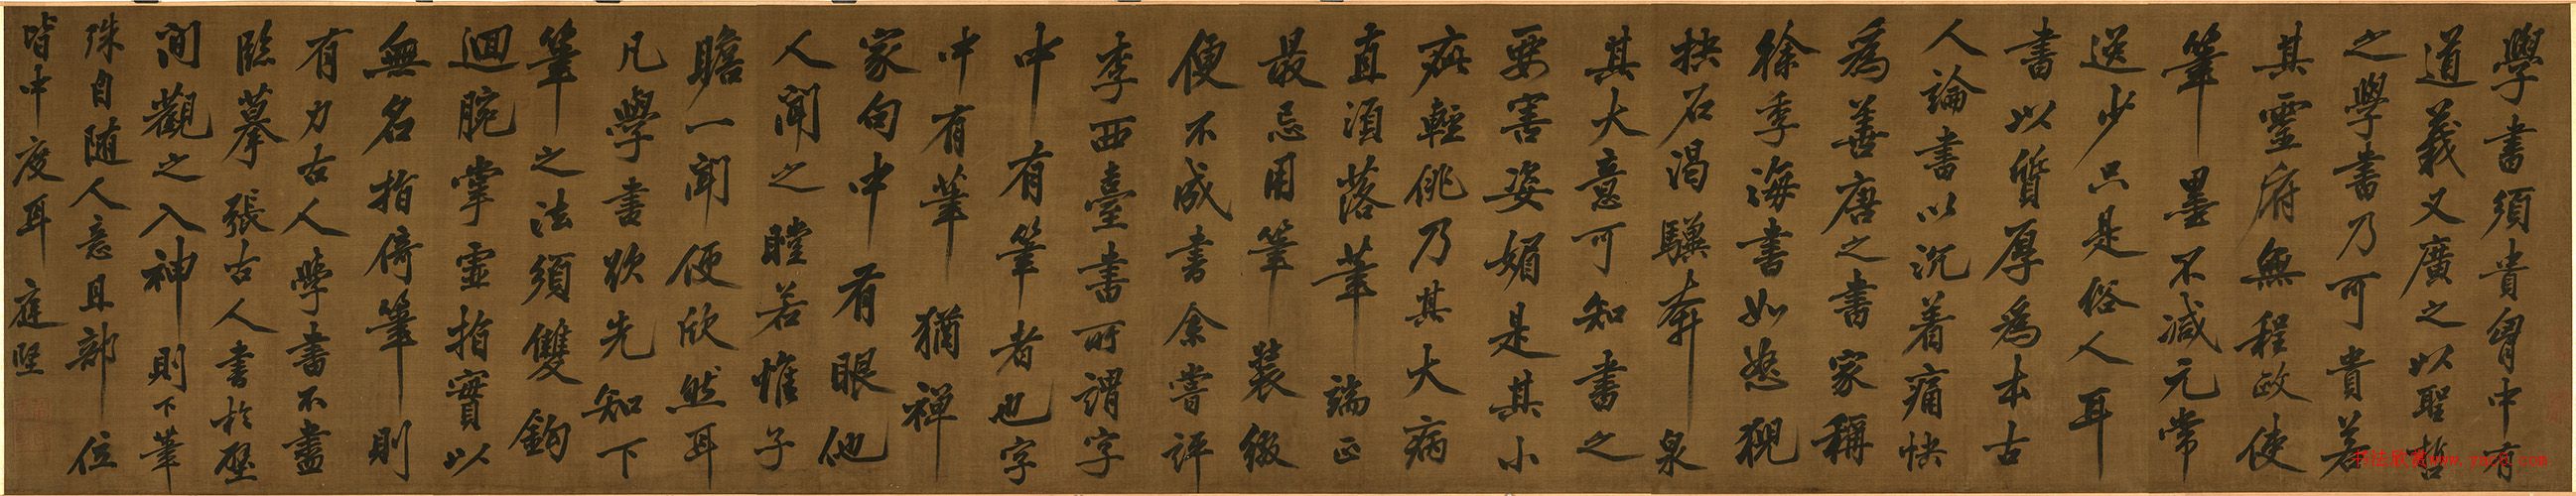 學書須貴胷中有
道義又廣之以聖哲
之學書乃可貴若
其靈府無程政使
筆墨不減元常
逸少只是俗人耳
書以質厚爲本古
人論書以沉着痛快
爲善唐之書家稱
徐季海書如怒猊
抉石渴驥奔泉
其大意可知書之
要害姿媚是其小
疵輕佻乃其大病
直須落筆端正
最忌用筆裝綴
便不成書余嘗評
李西臺書所謂字
中有筆者也字
中有筆猶禪
家句中有眼他
人聞之瞠若惟子
瞻一聞便欣然耳
凡學書欲先知下
筆之法須雙鉤
迴腕掌虛指實以
無名指倚筆則
有力古人學書不盡
臨摹張古人書於壁
間觀之入神則下筆
殊自随人意且部位
皆中度耳庭堅
书法欣赏www.yac8.com